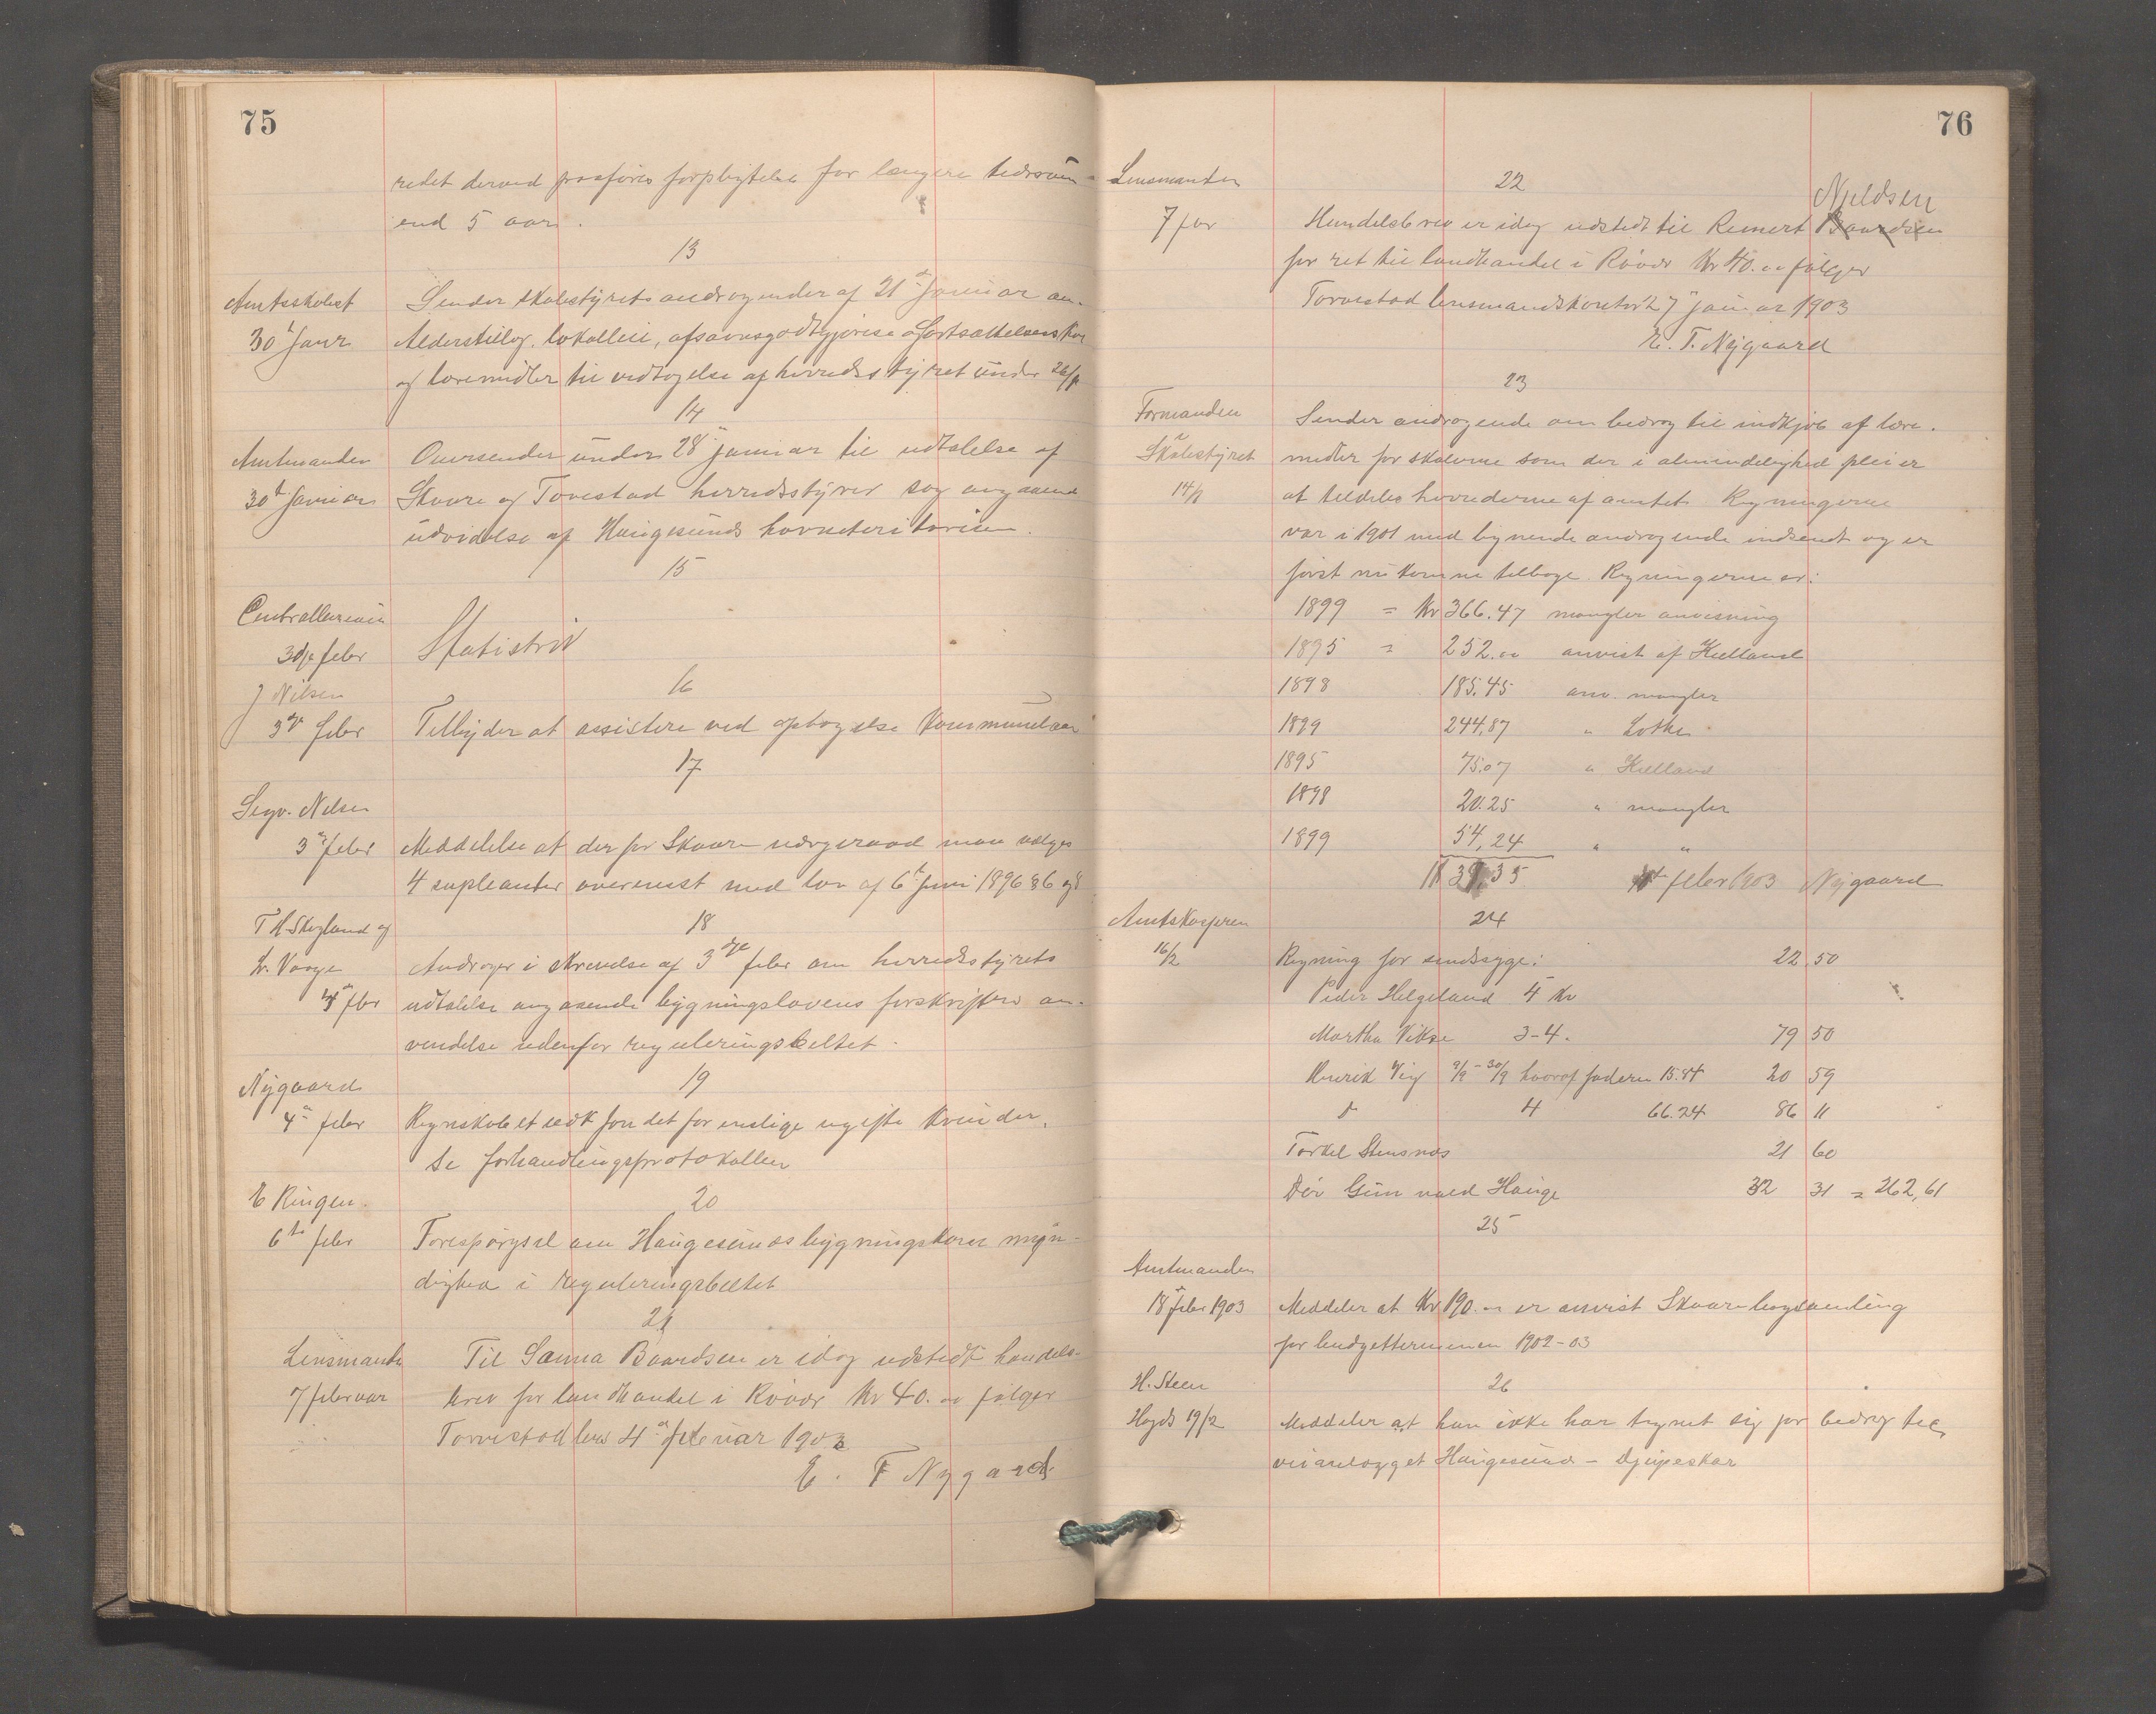 75
redet derved paaføres forpligtelse for længere tidsrum
end 5 aar.
13
Amtsskolest
30 Janr
Sender skolestyrets andragender af 21 Januar an.
Alderstillæg, lokalleie, afsavnsgodtgjørelse
og læremidler til vedtagelse af herredsstyret under
14
Amtmanden
30 Januar
Oversender under 28 januar til udtalelse af
Skaare og Torvestad herredsstyrer sag angaaende
udvidelse af Haugesunds havneteritorium.
15
3die febr
Statistik
16
J Nilsen
3de febr
Tilbyder at assistere ved optagelse
17
Sigv. Nilsen
3 febr
Meddelelse at der for Skaare værgeraad maa vælges
4 supleanter overenst med lov af 6te Juni 1896 §6 og 8
18
T H. Skogland og
L. Vaage
4 febr
Andrager i skrivelse af 3die febr om herredsstyrets
udtalelse angaaende bygningslovens forskrifters an-
vendelse udenfor reguleringsbeltet.
19
Nygaard
4 febr
Regnskab et fondet for enslige ugifte kvinder.
Se forhandlingsprotokollen
20
E Ringen.
6te febr
Forespørgsel om Haugesunds bygningskomm myn-
dighed i reguleringsbeltet
21
Lensmanden
7 februar
Til Sanna Baardsen er idag udstedt handels-
brev for landhandel i Røvær Kr 40.00 følger
Torvestad lens 4 februar 1903
E. T Nygaard
76
Lensmanden
7
22
Nieldsen
Handelsbrev er idag udstedt til Reinert Baardsen
for ret til landhandel i Røvær Kr 40.00 følger
Torvestad lensmandskontor 7 januar 1903
E. T. Nygaard
23
Formanden
Skolestyret
14/1
Sender andragende om bedrag til indkjøb af lære-
midler for skolerne som der i almindelighed pleier
at tildeles herrederne af amtet. Regningerne
var i 1901 med lignende andragende indsendt og er
først nu komne tilbage. Regningerne er:
1899 = Kr 366.47 mangler anvisning
1895 = 252.00 anvist af Kielland
1898 185.45 anv. mangler
1899 244,87 " Lothe
1895 75.07 " Kielland
1898 20.25 " mangler
1899 54,24 " "
febr 1903 Nygaard
24
Amtskasseren
16/2
Regning for sindssyge: 22 50
Peder Helgeland 4 Kr
Martha Vikse 3-4. 79 50
Henrik Vig 9/9 - 30/9 hvoraf faderen 15.84 20 59
4 66.24 86 11
Torkel Stensnæs 21 60
Gunvald Hauge 32 31 = 262,61
25
Amtmanden
18 febr 1903
Meddeler at Kr 190.00 er anvist Skaare bogsamling
for budgetterminen 1902-03
26
H. Steen
Hagds 19/2
Meddeler at han ikke har tegnet sig for bedrag til
veianlægget Haugesund - Djupeskar